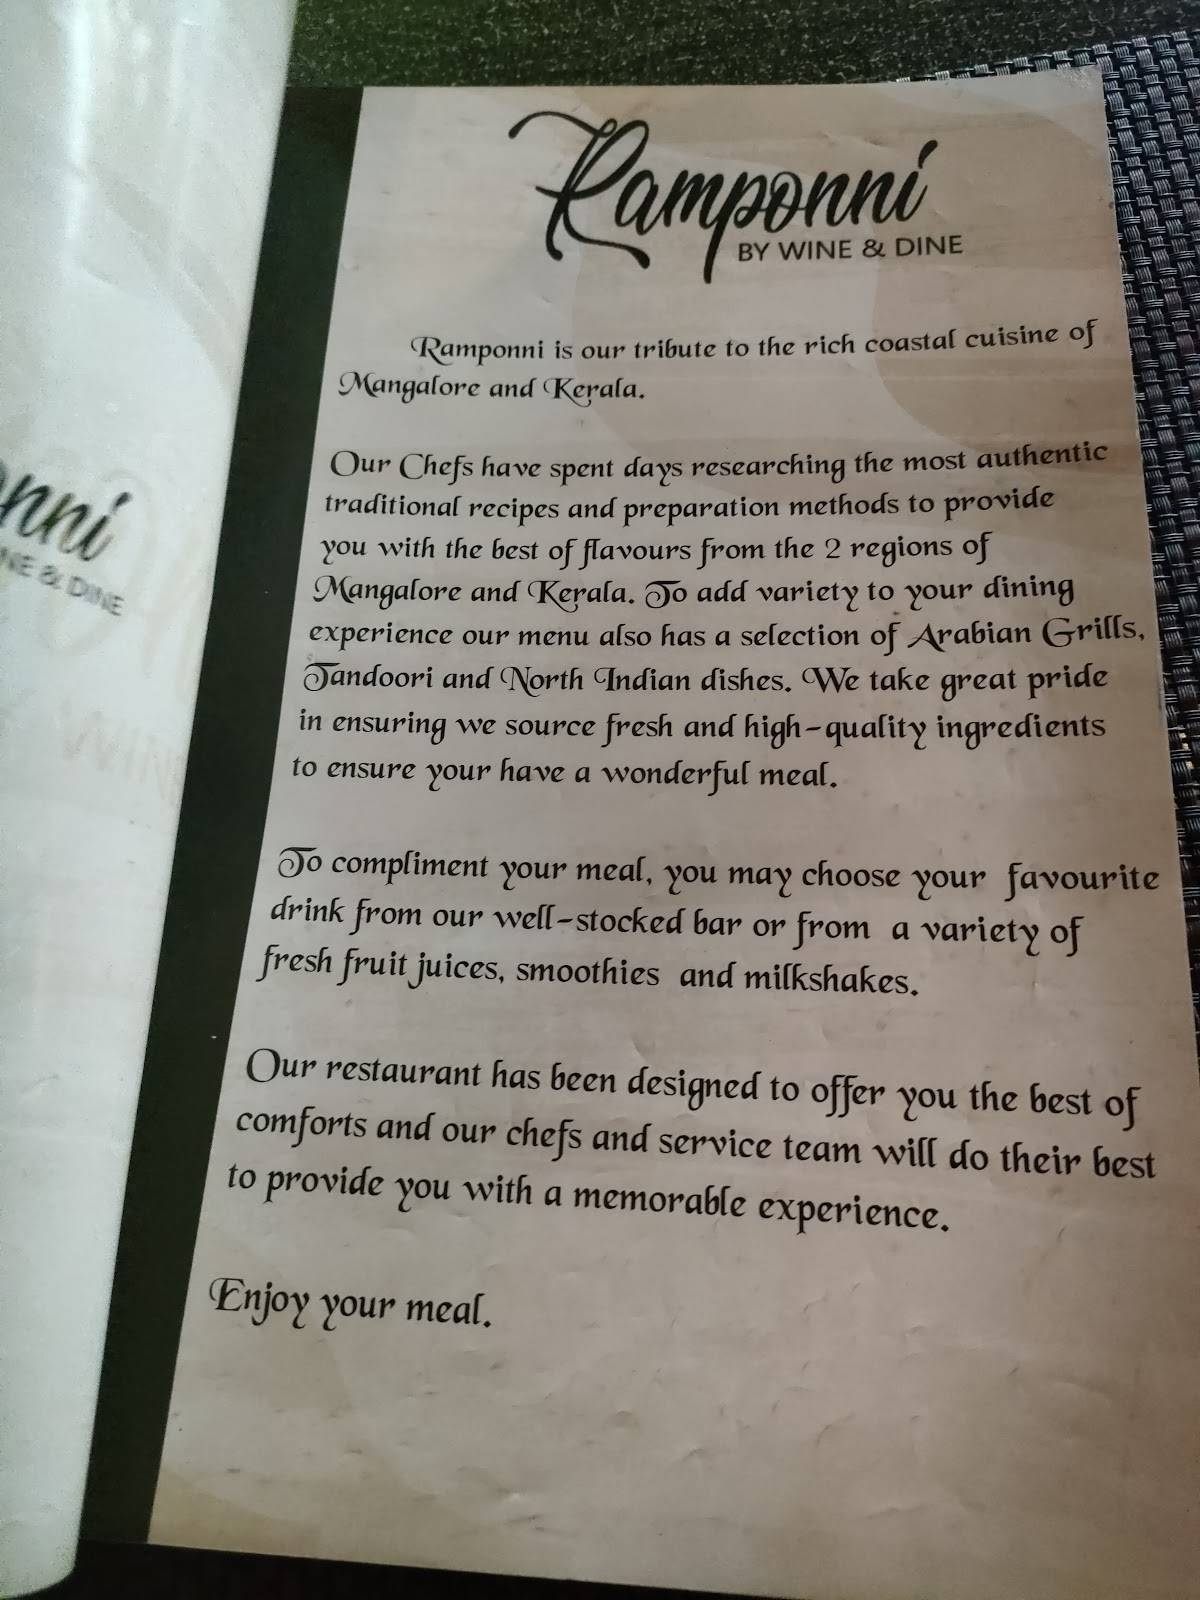 Ramponni
BY WINE & DINE
Ramponni is our tribute to the rich coastal cuisine of
Mangalore and Kerala.
Our Chefs have spent days researching the most authentic
traditional recipes and preparation methods to provide
you with the best of flavours from the 2 regions of
Mangalore and Kerala. To add variety to your dining
experience our menu also has a selection of Arabian Grills,
Tandoori and North Indian dishes. We take great pride
in ensuring we source fresh and high-quality ingredients
to ensure your have a wonderful meal.
To compliment your meal, you may choose your favourite
drink from our well-stocked bar or from a variety of
fresh fruit juices, smoothies and milkshakes.
Our restaurant has been designed to offer you the best of
comforts and our chefs and service team will do their best
to provide you with a memorable experience.
Enjoy your meal.
onni
NE & DINE
WIN